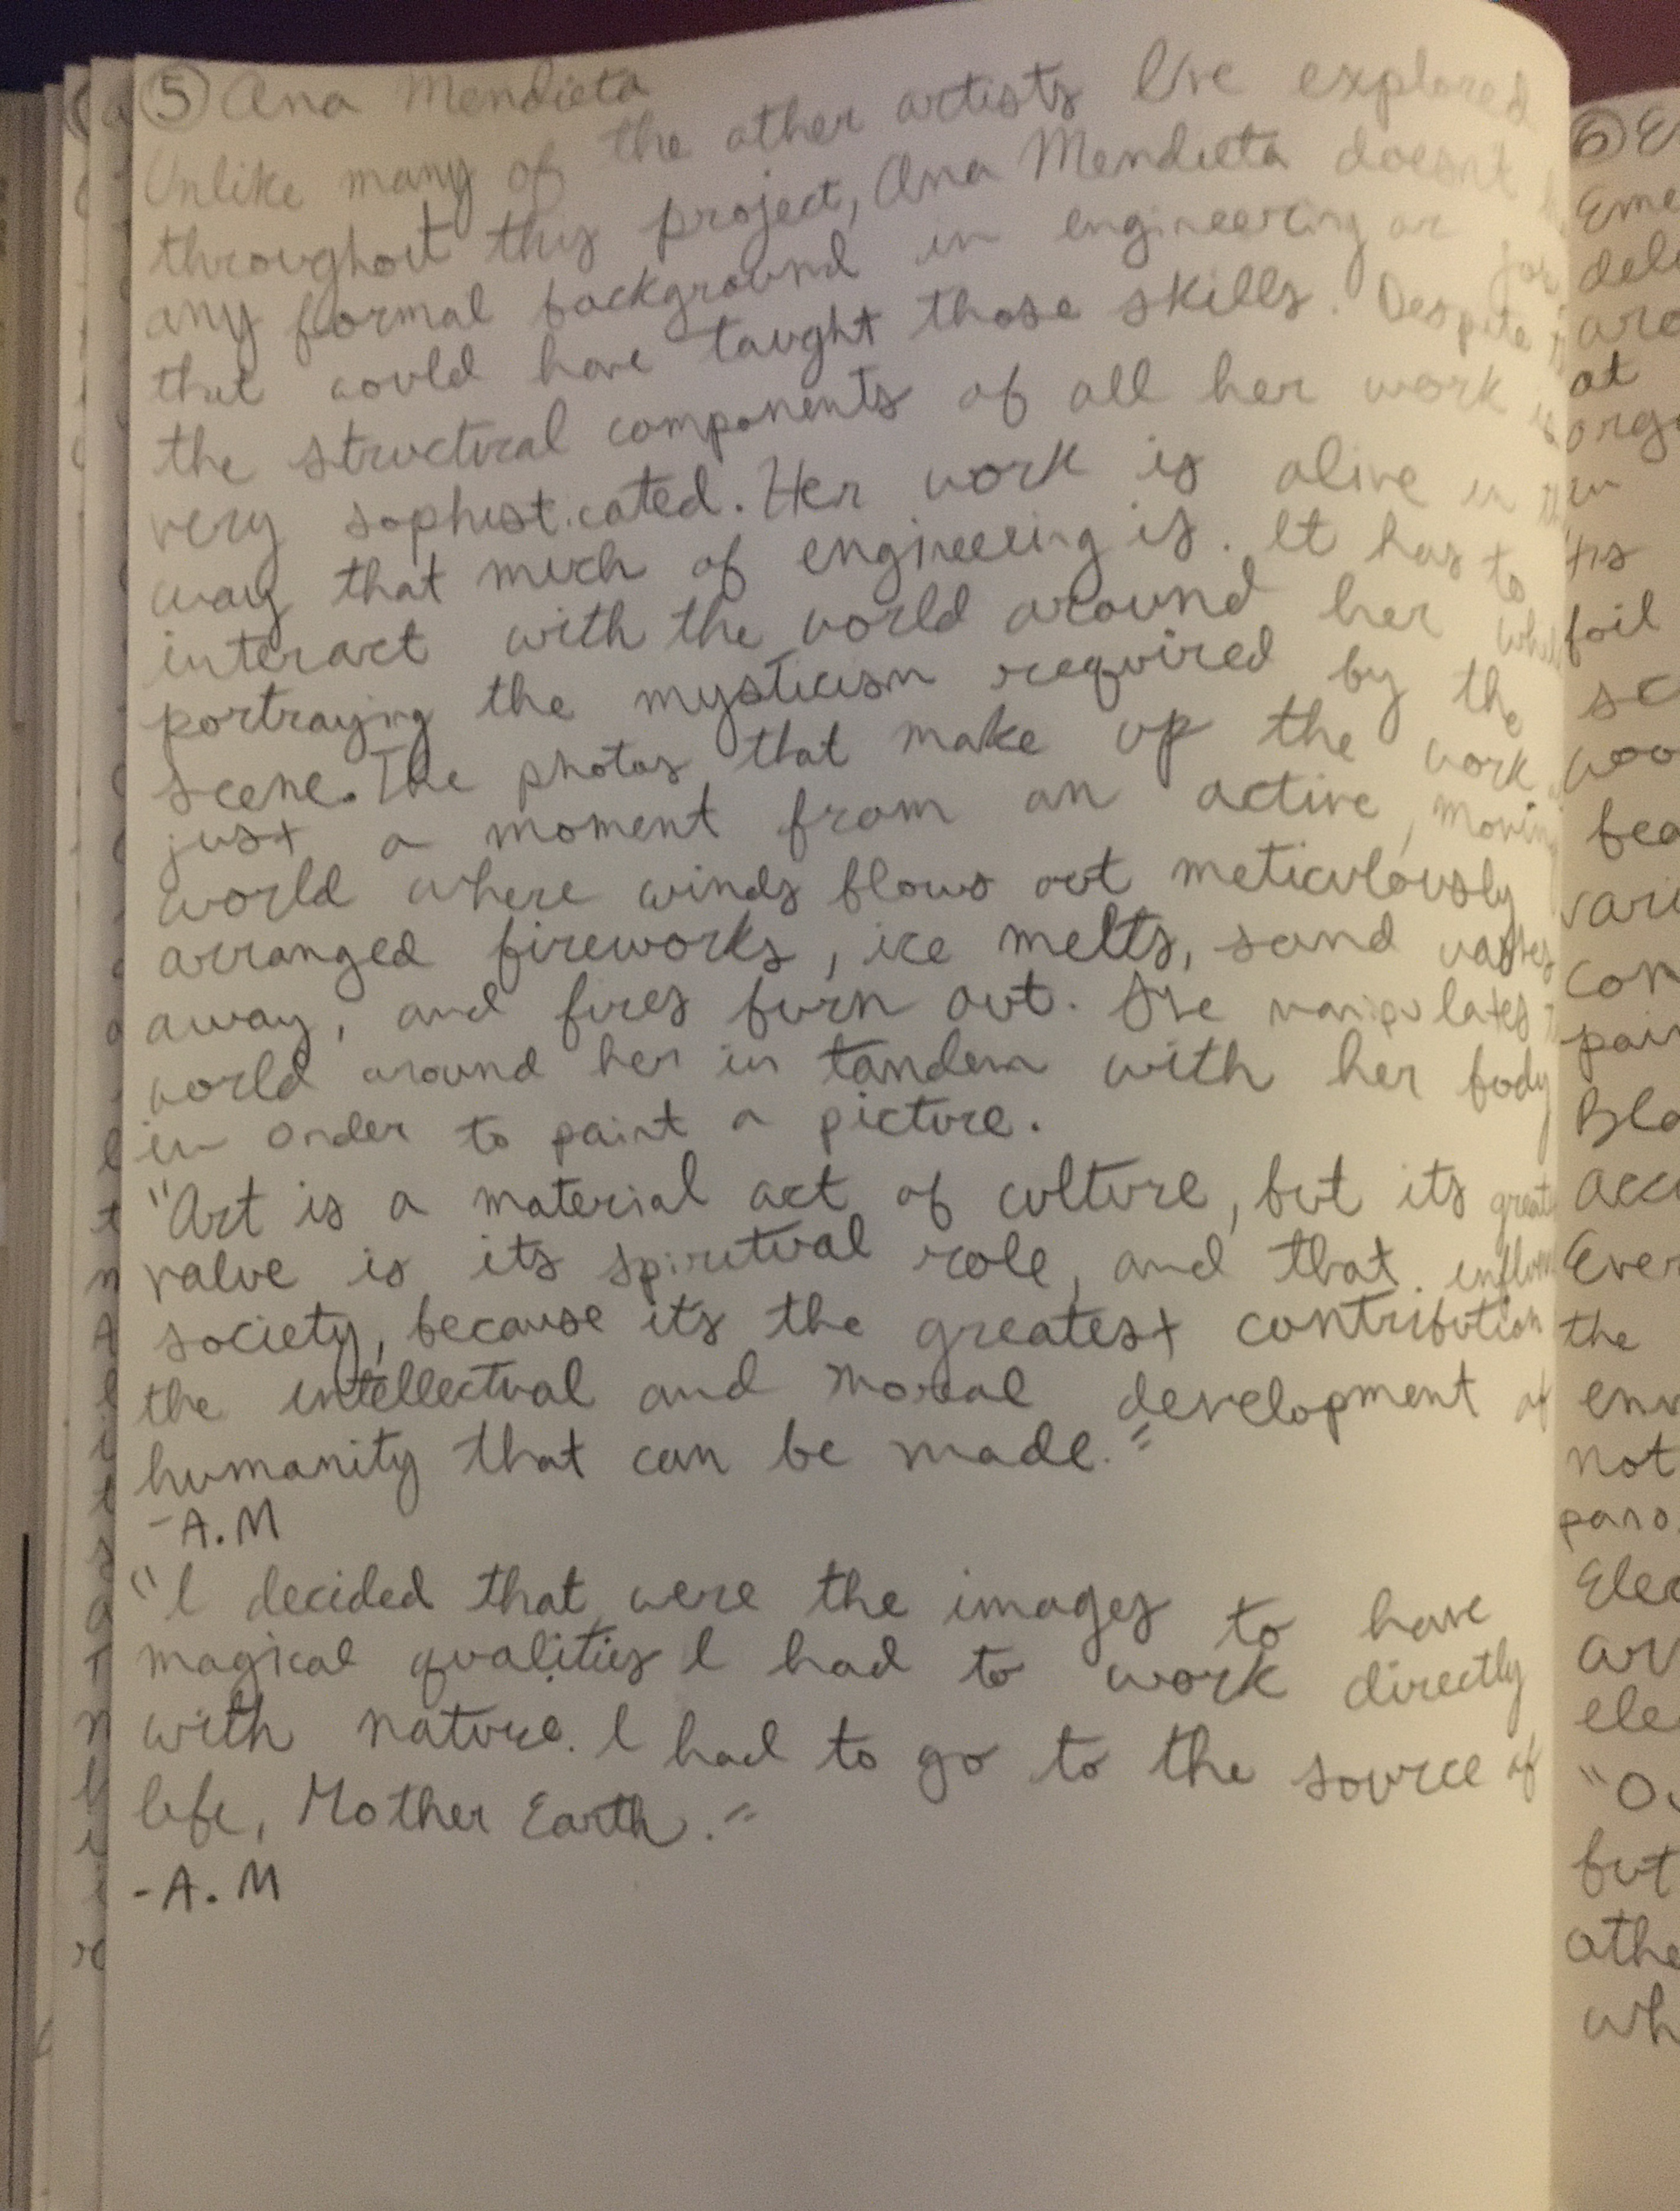 ⑤ Ana Mendieta
Unlike many of the other artists I've explored
throughout this project, Ana Mendieta doesn't
any formal background in engineering or
that could have taught those skills. Despite
the structural components of all her work is
very sophisticated. Her work is alive in the
way that much of engineering is. It has to
interact with the world around her while
portraying the mysticism required by the
scene. The photos that make up the work
just a moment from an active, moving
world where winds blows out meticulously
arranged fireworks, ice melts, sand washes
away, and fires burn out. She manipulates
world around her in tandem with her body
in order to paint a picture.
"Art is a material act of culture, but its great
value is its spiritual role, and that
society, because its the greatest contribution
the intellectual and moral development of
humanity that can be made."
-A.M
"I decided that were the images to have
magical qualities I had to work directly
with nature. I had to go to the source of
life, Mother Earth."
-A.M
⑥
at
in
foil
the
not
but